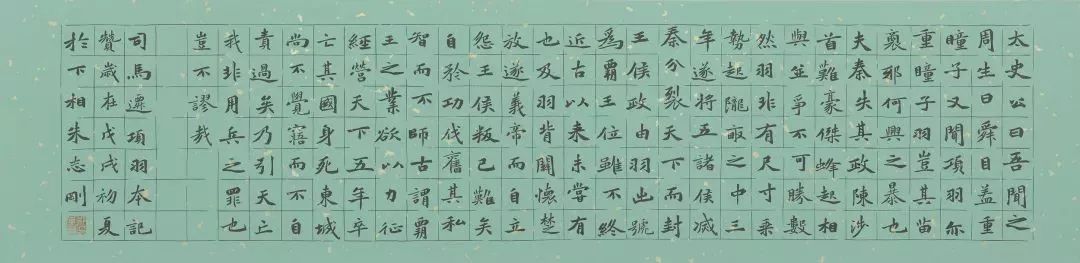 太史公曰吾聞之
周生曰舜目蓋重
瞳子又聞項羽亦
重瞳子羽豈其苗
裔邪何興之暴也
夫秦失其政陳涉
首難豪傑峰起相
與並爭不可勝數
然羽非有尺寸乘
勢起隴畝之中三
年遂將五諸侯滅
秦分裂天下而封
王侯政由羽出號
為霸王位雖不終
近古以來未嘗有
也及羽背關懷楚
放逐義帝而自立
怨王侯叛己難矣
自矜功伐奮其私
智而不師古謂霸
王之業欲以力征
經營天下五年卒
亡其國身死東城
尚不覺寤而不自
責過矣乃引天亡
我非用兵之罪也
豈不謬哉
司馬遷項羽本記
贊歲在戊戌初夏
於下相朱志剛